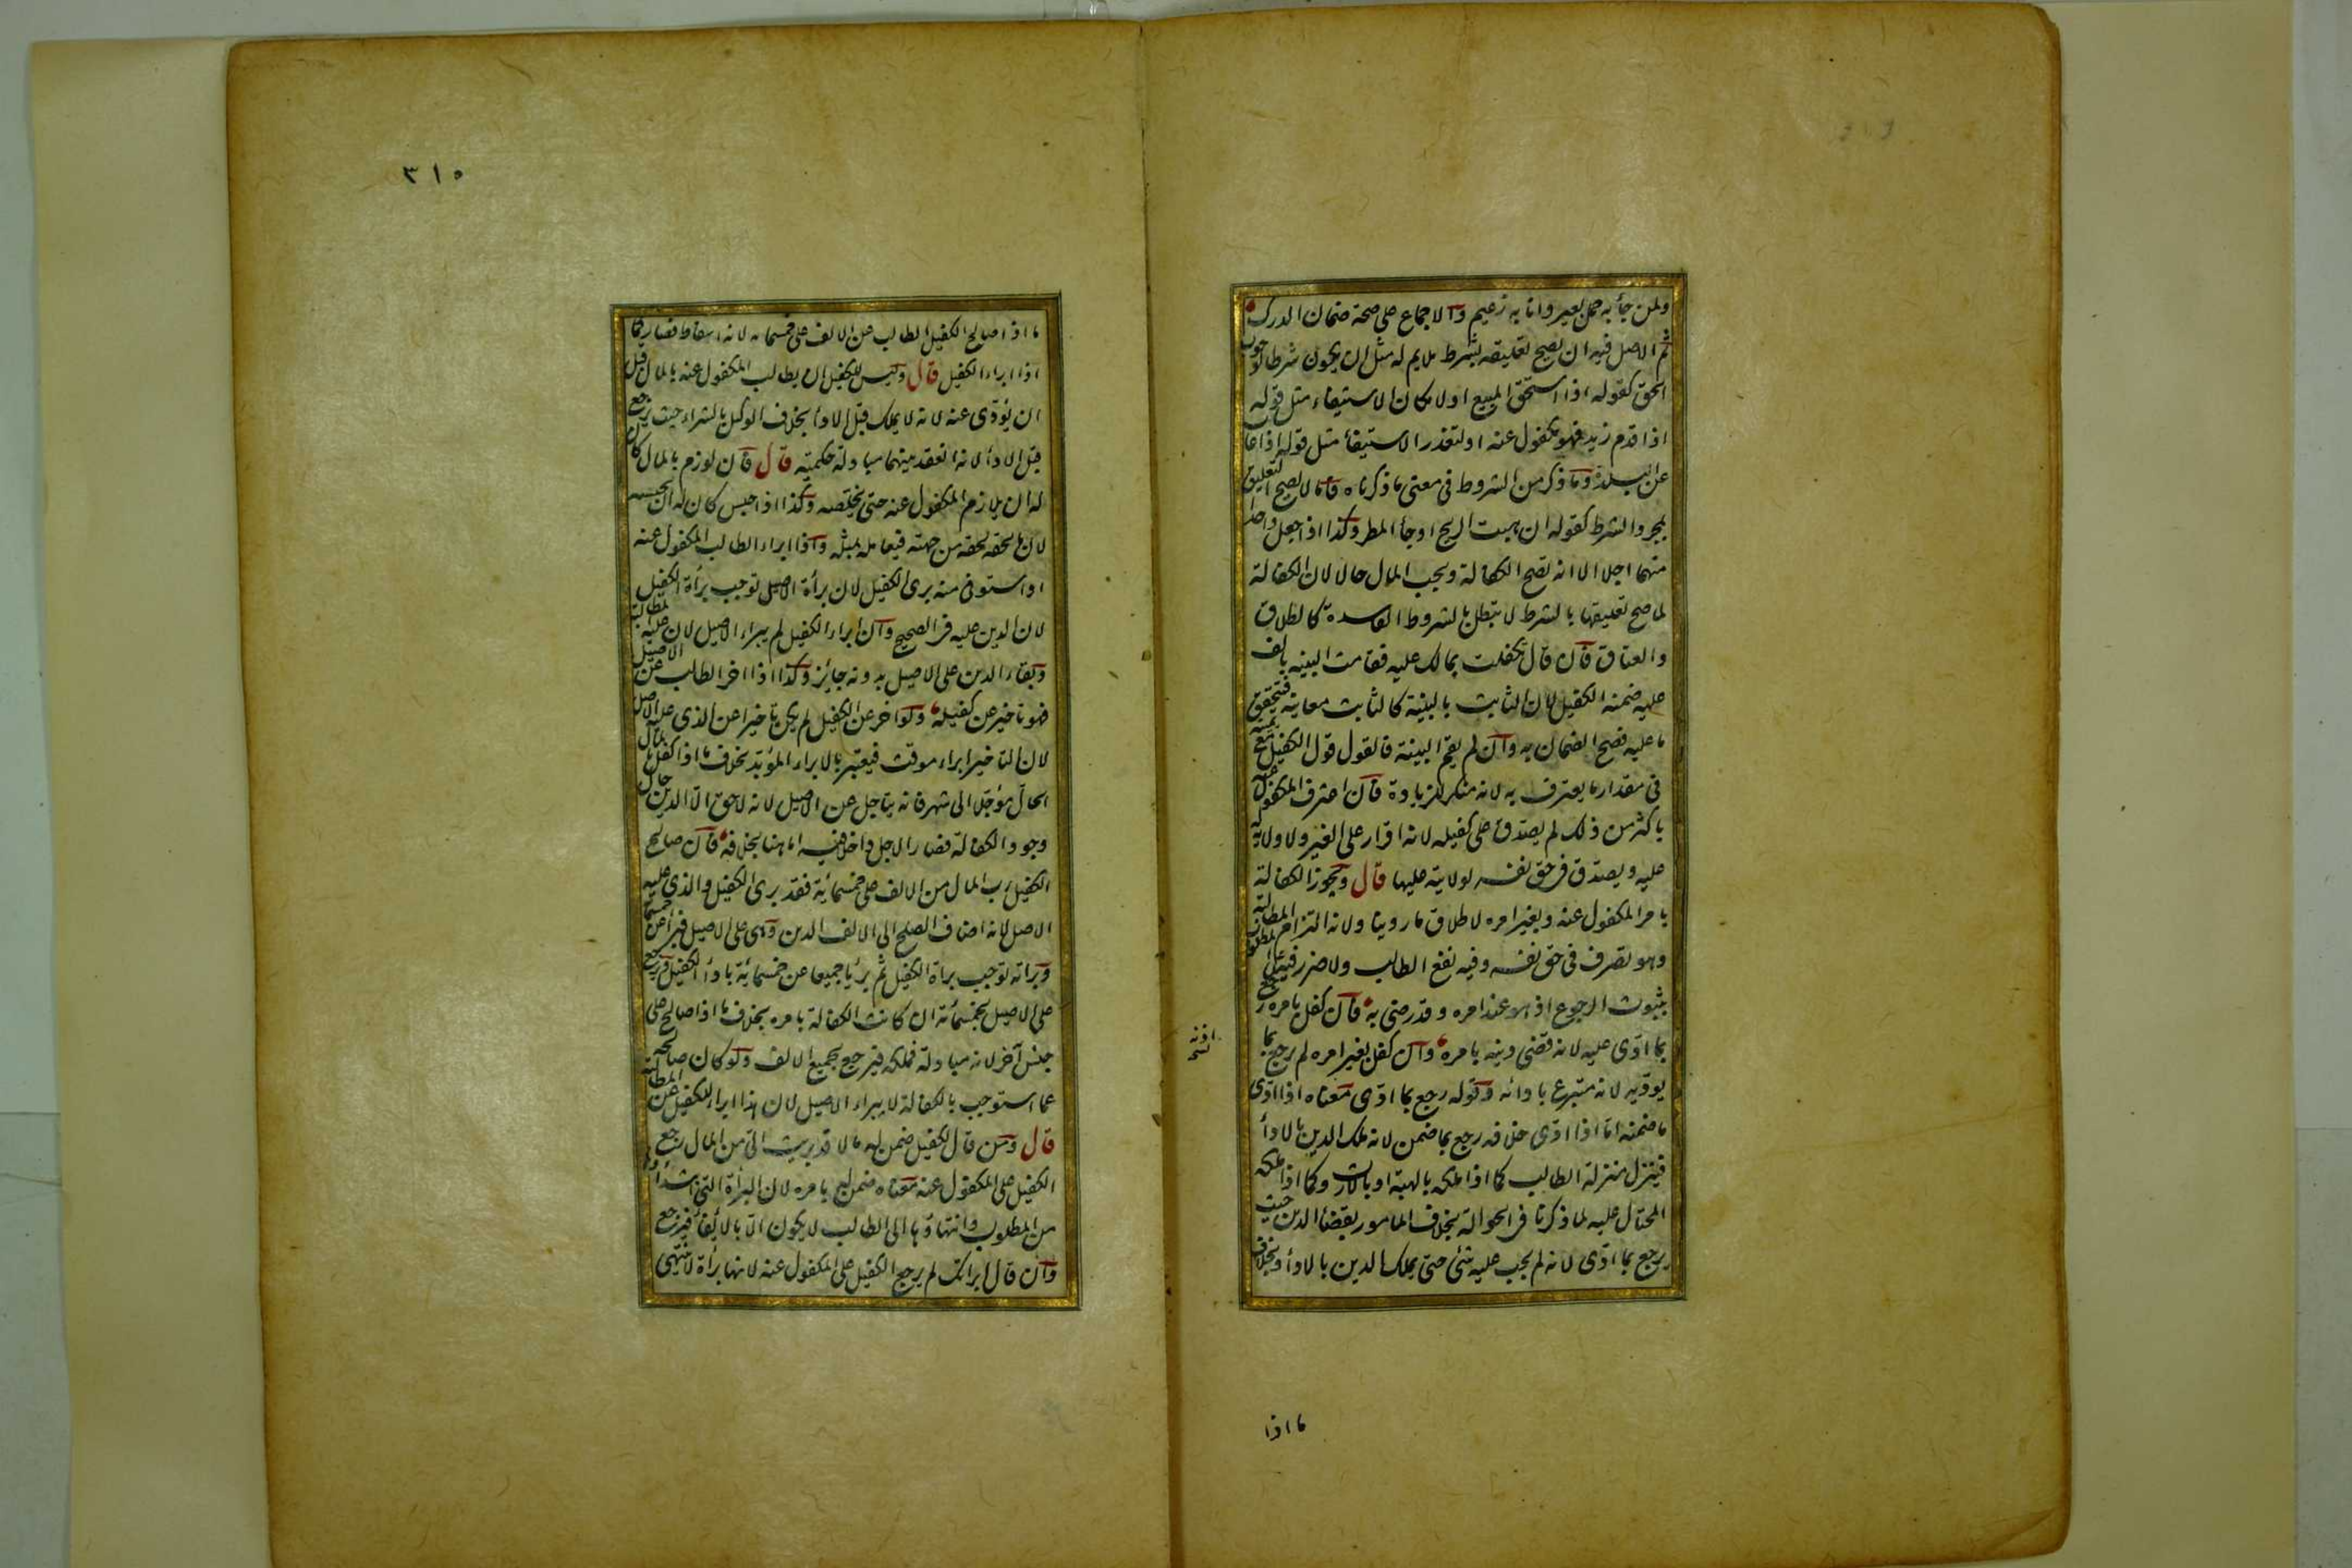 ولمن جأ به حمل بعير وانا به زعيم والاجماع على صحة ضمان الدرك
ثم الاصل فيه ان يصح تعليقه بشرط ملايم له مثل ان يكون شرطا لوجوب
الحق كقوله اذا استحق المبيع او لامكان الاستيفاء مثل قوله
اذا قدم زيد فهو مكفول عنه او لتعذر الاستيفأ مثل قوله اذا غاب
عن البلدة وما ذكر من الشروط فى معنى ما ذكرناه فاما لا يصح التعليق
بمجرد الشرط كقوله ان هبت الريح او جأ المطر وكذا اذا جعل واحدا
منهما اجلا الا انه تصح الكفالة ويجب المال حالا لان الكفالة
لما صح تعليقها بالشرط لا تبطل بالشروط الفاسدة كالطلاق
والعتاق فان قال تكفلت بمالك عليه فقامت البينه بالف
عليه ضمنه الكفيل لان الثابت بالبينة كالثابت معاينة فتحقق
ما عليه فصح الضمان به وان لم يقم البينة فالقول قول الكفيل مع يمينه
فى مقدار ما يعترف به لانه منكر للزيادة فان اعترف المكفول عنه
باكثر من ذلك لم يصدق على كفيله لانه اقرار على الغير ولا ولاية له
عليه ويصدق فى حق نفسه لولايته عليها قال ويجوز الكفالة
بامر المكفول عنه وبغير امره لاطلاق ما روينا ولانه التزام المطالبة
وهو تصرف فى حق نفسه وفيه نفع الطالب ولا ضرر فيه على المطلوب
بثبوت الرجوع اذ هو عند امره وقد رضى به فان كفل بامره رجع
بما ادى عليه لانه قضى دينه بامره وان كفل بغير امره لم يرجع بما
يوديه لانه متبرع بادائه وقوله رجع بما ادى معناه اذا ادى
ما ضمنه اما اذا ادى خلافه رجع بما ضمن لانه ملك الدين بالادأ
فينزل منزلة الطالب كما اذا ملكه بالهبة او بالارث وكما اذا ملكه
المحتال عليه لما ذكرنا فى الحوالة بخلاف المامور بقضأ الدين حيث
يرجع بما ادى لانه لم يجب عليه شئ حتى يملك الدين بالادأ وبخلاف
ما اذا
٣١٥
ما اذا صالح الكفيل الطالب من الالف على خمسمائه لانه اسقاط فصار كما
اذا ابراء الكفيل قال وليس للكفيل ان يطالب المكفول عنه بالمال قبل
ان يؤدى عنه لانه لا يملك قبل الادأ بخلاف الوكيل بالشراء حيث يرجع
قبل الادأ لانه انعقد بينهما مبادلة حكمية قال فان لوزم بالمال كان
له ان يلازم المكفول عنه حتى يخلصه وكذا اذا حبس كان له ان يحبسه
لان ما لحقه لحقه من جهته فيعامله بمثله واذا ابراء الطالب المكفول عنه
او استوفى منه برئ الكفيل لان برأة الاصيل توجب برأة الكفيل
لان الدين عليه فى الصحيح وان ابراء الكفيل لم يبراء الاصيل لان عليه المطالبة
وبقاء الدين على الاصيل بدونه جايز وكذا اذا اخر الطالب عن الاصيل
فهو تاخير عن كفيله ولو اخر عن الكفيل لم يكن تاخيرا عن الذى عليه الاصل
لان التاخير ابراء موقت فيعتبر بالابراء المؤبد بخلاف ما اذا كفل بالمال
الحال مؤجلا الى شهر فانه يتاجل عن الاصيل لانه لا حق الا الدين حال
وجود الكفالة فصار الاجل داخلا فيه اما ههنا بخلافه فان صالح
الكفيل رب المال من الالف على خمسمائة فقد برئ الكفيل والذى عليه
الاصل لانه اضاف الصلح الى الالف الدين وهى على الاصيل فبرأ عن خمسمائة
وبراته توجب براة الكفيل ثم برئا جميعا عن خمسمائة بادأ الكفيل ويرجع
على الاصيل بخمسمائة ان كانت الكفالة بامره بخلاف ما اذا صالح على
جنس آخر لانه مبادلة فملكه فيرجع بجميع الالف ولو كان صالحه
عما استوجب بالكفالة لا يبراء الاصيل لان هذا ابراء الكفيل عن المطالبة
قال ومن قال لكفيل ضمن له مالا قد بريت الى من المال رجع
الكفيل على المكفول عنه معناه ضمن له بامره لان البرأة التى ابتداؤها
من المطلوب وانتهاؤها الى الطالب لا يكون الا بالايفأ فيرجع
وان قال ابراتك لم يرجع الكفيل على المكفول عنه لانها برأة لا تنتهى